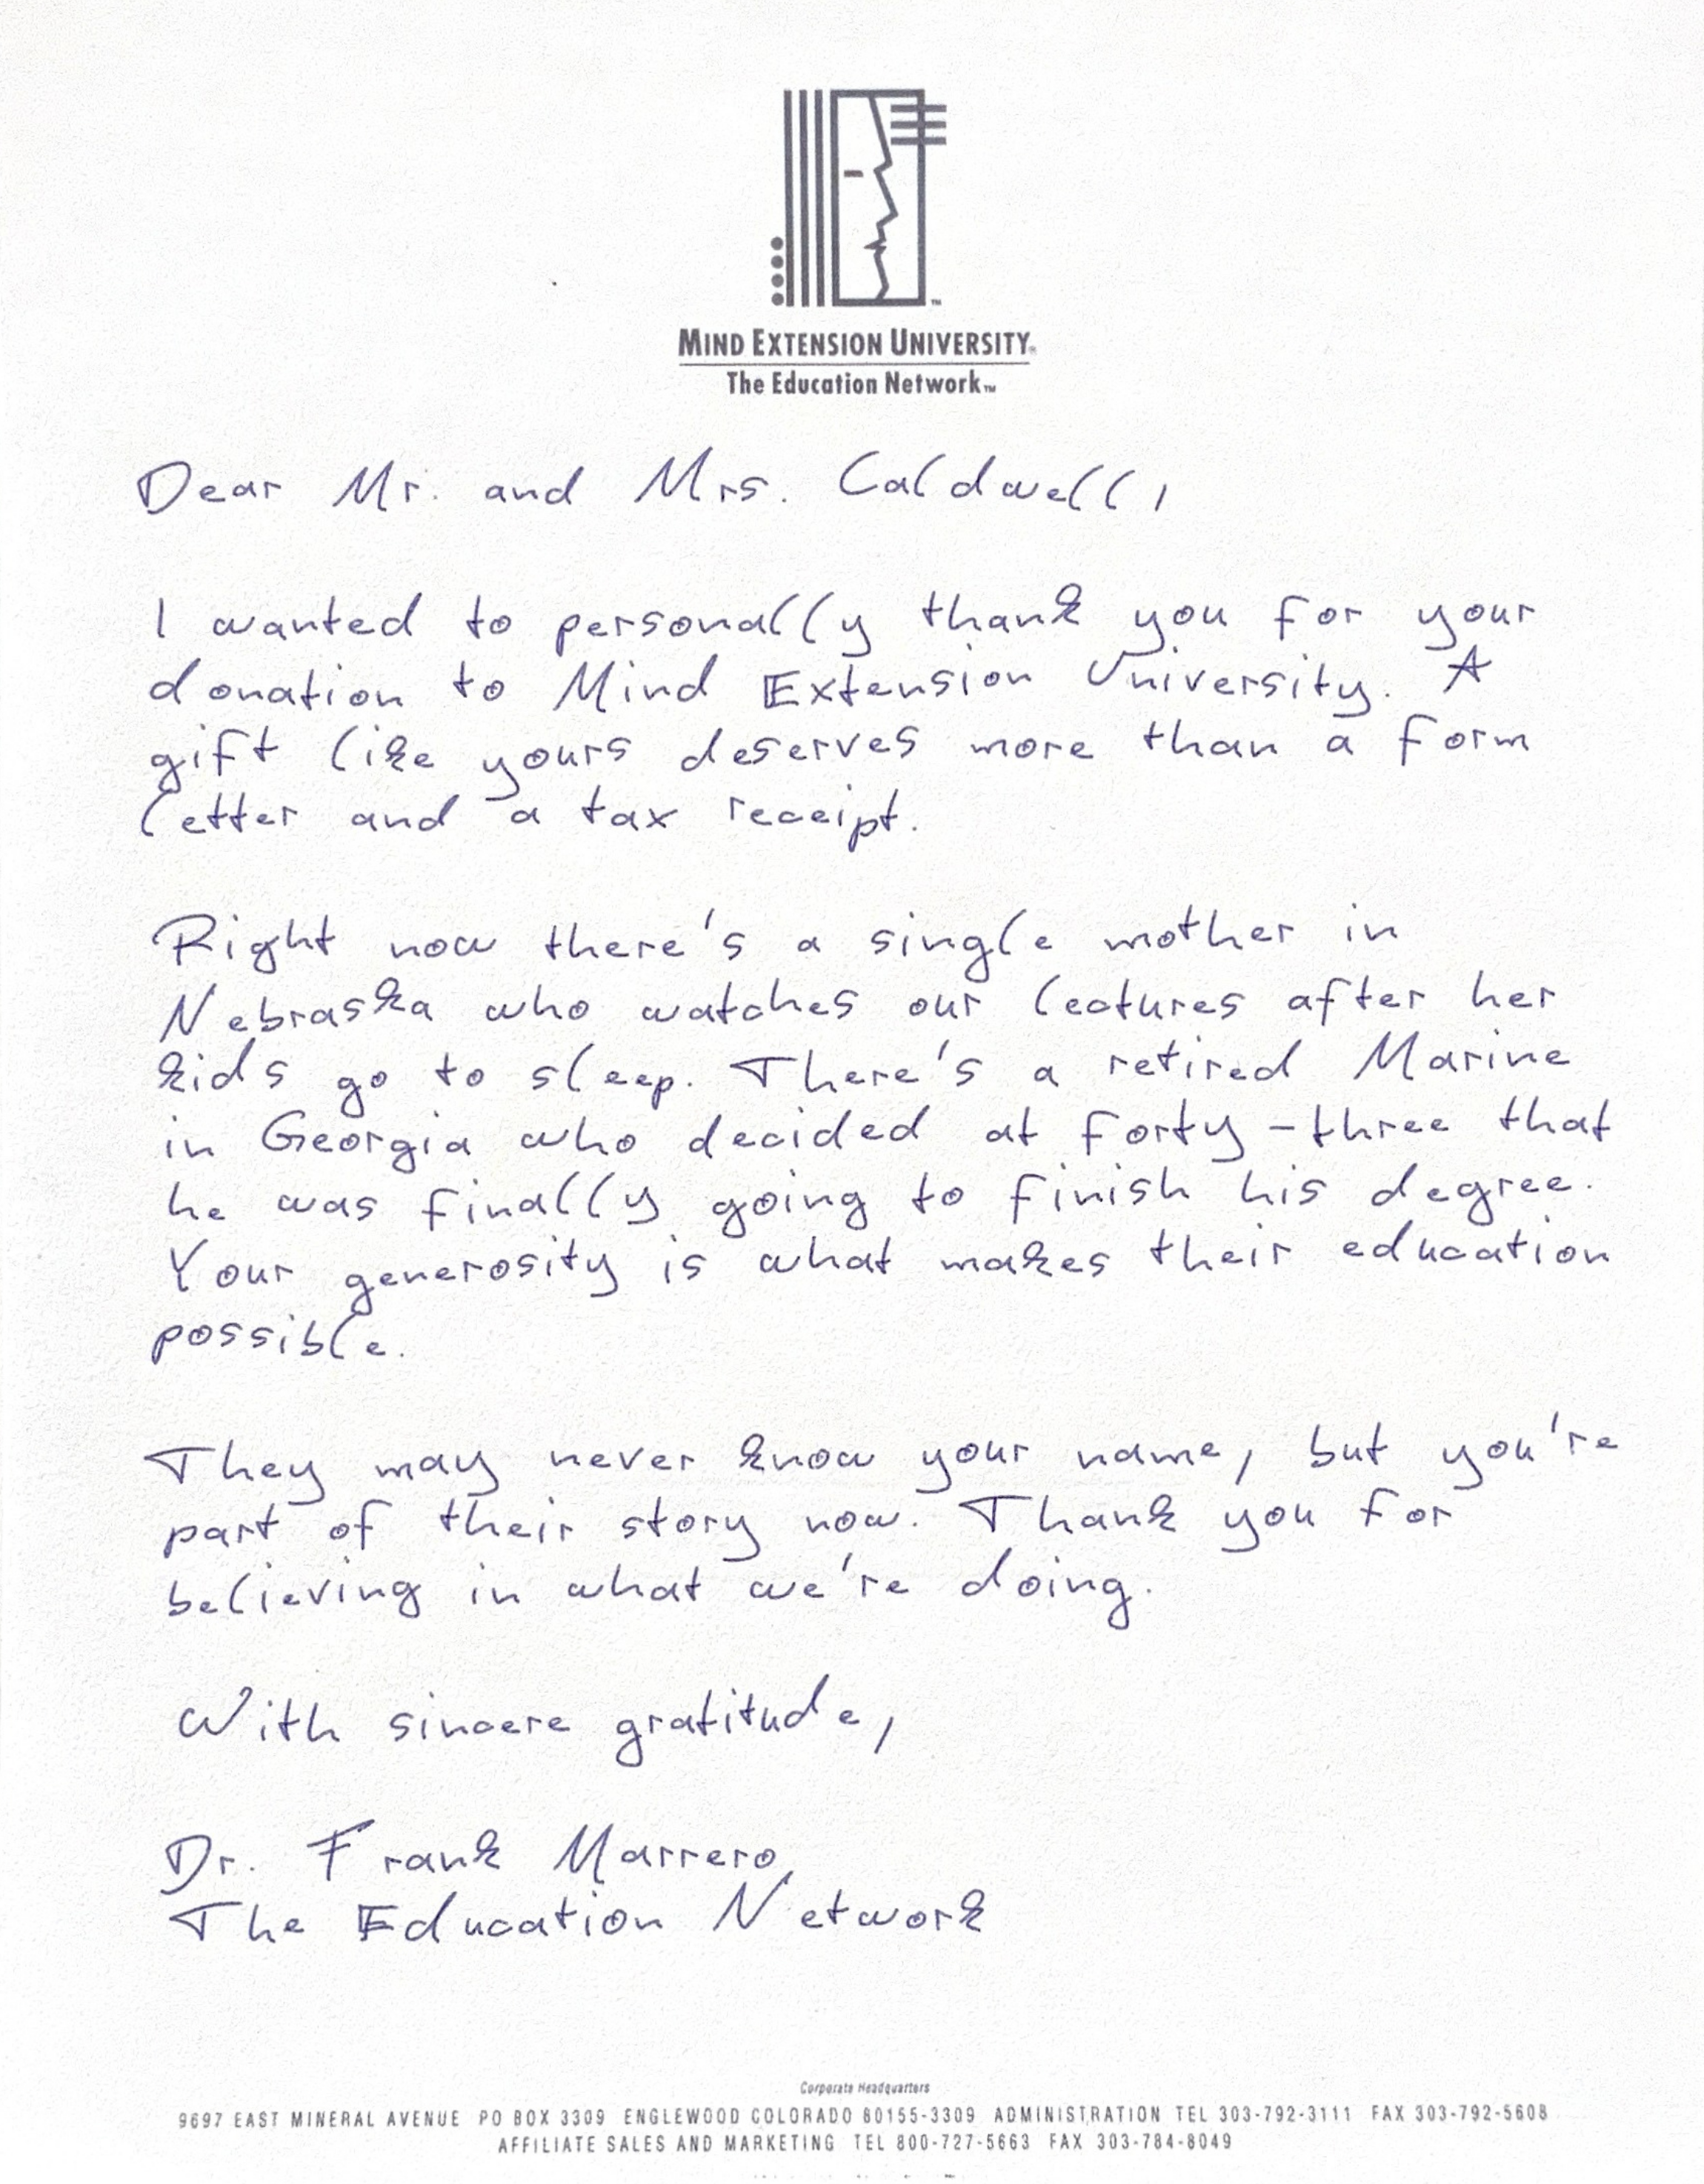 MIND EXTENSION UNIVERSITY®
The Education Network™
Dear Mr. and Mrs. Caldwell,
I wanted to personally thank you for your
donation to Mind Extension University. A
gift like yours deserves more than a form
letter and a tax receipt.
Right now there's a single mother in
Nebraska who watches our lectures after her
kids go to sleep. There's a retired Marine
in Georgia who decided at forty-three that
he was finally going to finish his degree.
Your generosity is what makes their education
possible.
They may never know your name, but you're
part of their story now. Thank you for
believing in what we're doing.
With sincere gratitude,
Dr. Frank Marrero,
The Education Network
Corporate Headquarters
9697 EAST MINERAL AVENUE PO BOX 3309 ENGLEWOOD COLORADO 80155-3309 ADMINISTRATION TEL 303-792-3111 FAX 303-792-5608
AFFILIATE SALES AND MARKETING TEL 800-727-5663 FAX 303-784-8049